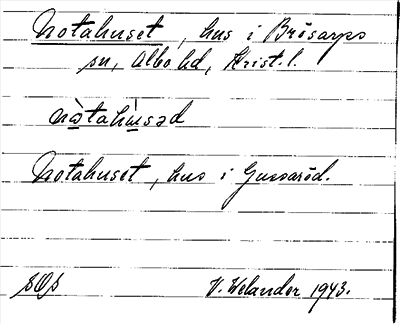 Notahuset, hus i Brösarps
sn, Albo hd, Krist. l.
nòtahùsəd
Notahuset, hus i Gussaröd.
V. Welander 1943.